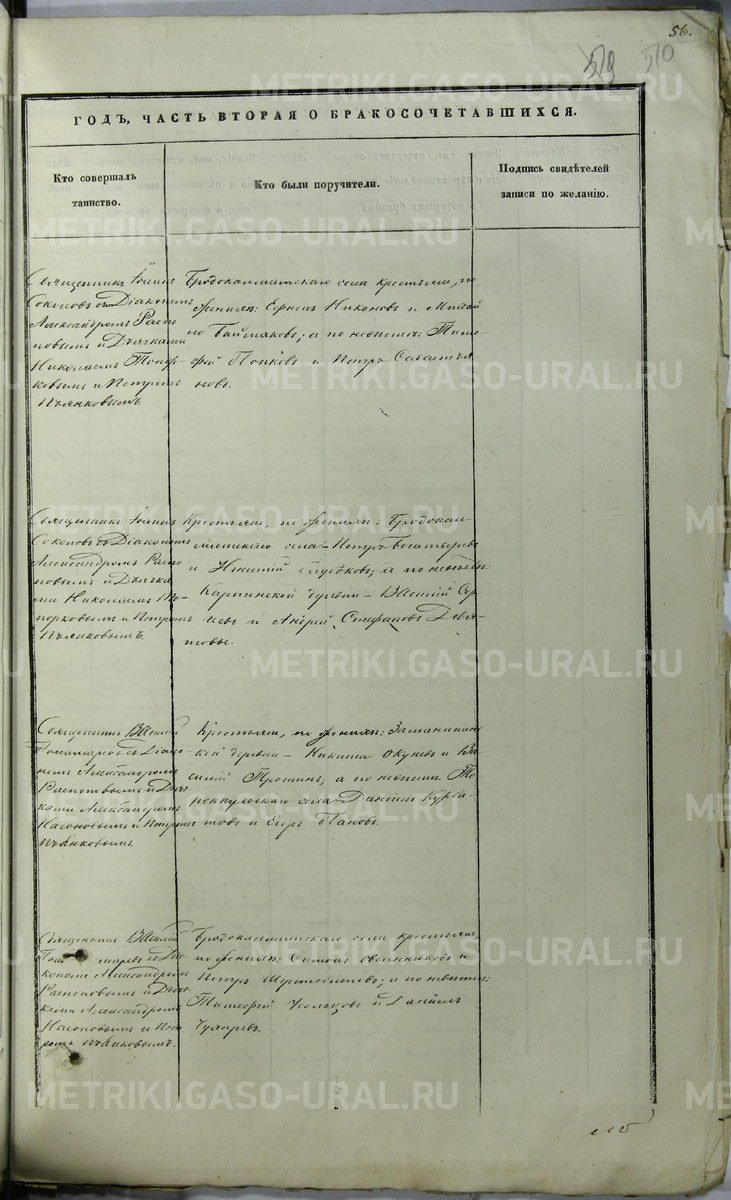 56.
510
ГОДЪ, ЧАСТЬ ВТОРАЯ О БРАКОСОЧЕТАВШИХСЯ.
Кто совершалъ
таинство.
Кто были поручители.
Подпись свидѣтелей
записи по желанію.
Священникъ Іоаннъ
Соколовъ съ Діакономъ
Александромъ Распо-
повымъ и Дьячками
Николаемъ Топор-
ковымъ и Петромъ
Пьянковымъ.
Бродокалматскаго села крестьяне, по
женихѣ: Никоновъ и Михай
ло Баймаковъ; а по невѣстѣ: Тимо-
фей Попковъ и Петръ Савастья-
новъ.
Священникъ Іоаннъ
Соколовъ съ Діакономъ
Александромъ Распо-
повымъ и Дьячка
ми Николаемъ То-
порковымъ и Петромъ
Пьянковымъ.
Крестьяне, по женихѣ: Бродокал-
матскаго села – Петръ Богатыревъ
и Игнатій; а по невѣстѣ:
деревни – Василій
и Андрей Стефановъ Девя-
товы.
Священникъ Василій
Пономаревъ съ Діако-
номъ Александромъ
Распоповымъ и Дьяч
ками Александромъ
Насоновымъ и Петромъ
Пьянковымъ.
Крестьяне, по женихѣ:
деревни – Никита Окуневъ и Ва
силій Прошинъ; а по невѣстѣ:
села – Даніилъ Курба-
товъ и Егоръ Пановъ.
Священникъ Василій
Пономаревъ съ Діа
кономъ Александромъ
Распоповымъ и Дьяч
ками Александромъ
Насоновымъ и Пет
ромъ Пьянковымъ.
Бродокалматскаго села крестьяне,
по женихѣ: Овчинниковъ и
Петръ; а по невѣстѣ:
Тимофей и Даніилъ
Чухаревъ.
METRIKI.GASO-URAL.RU